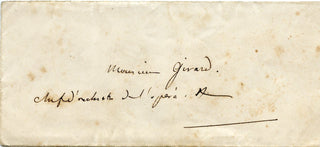 Monsieur Girard.
Chef d'orchestre de l'opéra.